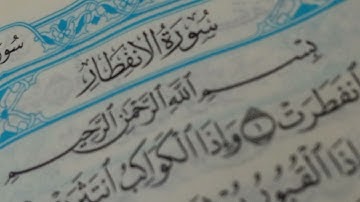 سُورَةُ الِانفِطَارِ
بِسْمِ اللَّهِ الرَّحْمَٰنِ الرَّحِيمِ
انفَطَرَتْ ١ وَإِذَا الْكَوَاكِبُ انتَثَرَتْ
الْقُبُورُ